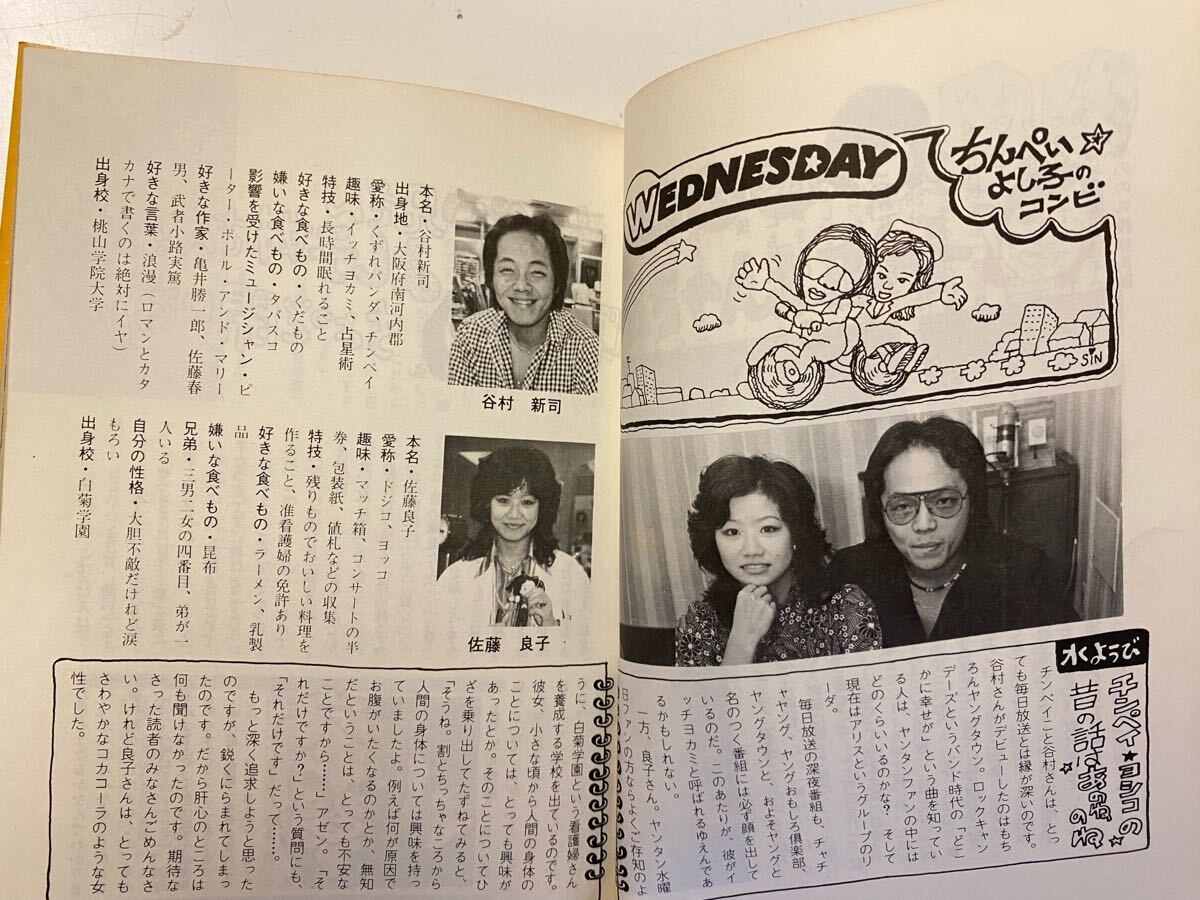 WEDNESDAY
ちんぺい☆
よし子の
コンビ
SiN
水くようび
チンペイ★ヨシコの
昔の話はあのねのね
チンペイこと谷村さんは、とっ
ても毎日放送とは縁が深いのです。
谷村さんがデビューしたのはもち
ろんヤングタウン。ロックキャン
デーズというバンド時代の「どこ
かに幸せが」という曲を知ってい
る人は、ヤンタンファンの中には
どのくらいいるのかな？ そして
現在はアリスというグループのリ
ーダ。
毎日放送の深夜番組も、チャチ
ャヤング、ヤングおもしろ倶楽部、
ヤングタウンと、およそヤングと
名のつく番組には必ず顔を出して
いるのだ。このあたりが 彼がイ
ッチヨカミと呼ばれるゆえんであ
るかもしれない。
一方、良子さん。ヤンタン水曜
日ファンの方ならよくご存知のよ
本名・谷村新司
出身地・大阪府南河内郡
愛称・くずれパンダ、チンペイ
趣味・イッチヨカミ、占星術
特技・長時間眠れること
好きな食べもの・くだもの
嫌いな食べもの・タバスコ
影響を受けたミュージシャン・ピ
ーター・ポール・アンド・マリー
好きな作家・亀井勝一郎、佐藤春
男、武者小路実篤
好きな言葉・浪漫（ロマンとカタ
カナで書くのは絶対にイヤ）
出身校・桃山学院大学
谷村 新司
本名・佐藤良子
愛称・ドジコ、ヨッコ
趣味・マッチ箱、コンサートの半
券、包装紙、値札などの収集
特技・残りものでおいしい料理を
作ること、准看護婦の免許あり
好きな食べもの・ラーメン、乳製
品
嫌いな食べもの・昆布
兄弟・三男二女の四番目、弟が一
人いる
自分の性格・大胆不敵だけれど涙
もろい
出身校・白菊学園
佐藤 良子
うに、白菊学園という看護婦さん
を養成する学校を出ているのです。
彼女、小さな頃から人間の身体の
ことについては、とっても興味が
あったとか。そのことについてひ
ざを乗り出してたずねてみると、
「そうね。割とちっちゃなころから
人間の身体については興味を持っ
ていましたよ。例えば何が原因で
お腹がいたくなるのかとか、無知
だということは、とっても不安な
ことですから……」アゼン。「そ
れだけですか？」という質問にも、
「それだけです」だって……。
もっと深く追求しようと思った
のですが、鋭くにらまれてしまっ
たのです。だから肝心のところは
何も聞けなかったのです。期待な
さった読者のみなさんごめんなさ
い。けれど良子さんは、とっても
さわやかなコカコーラのような女
性でした。